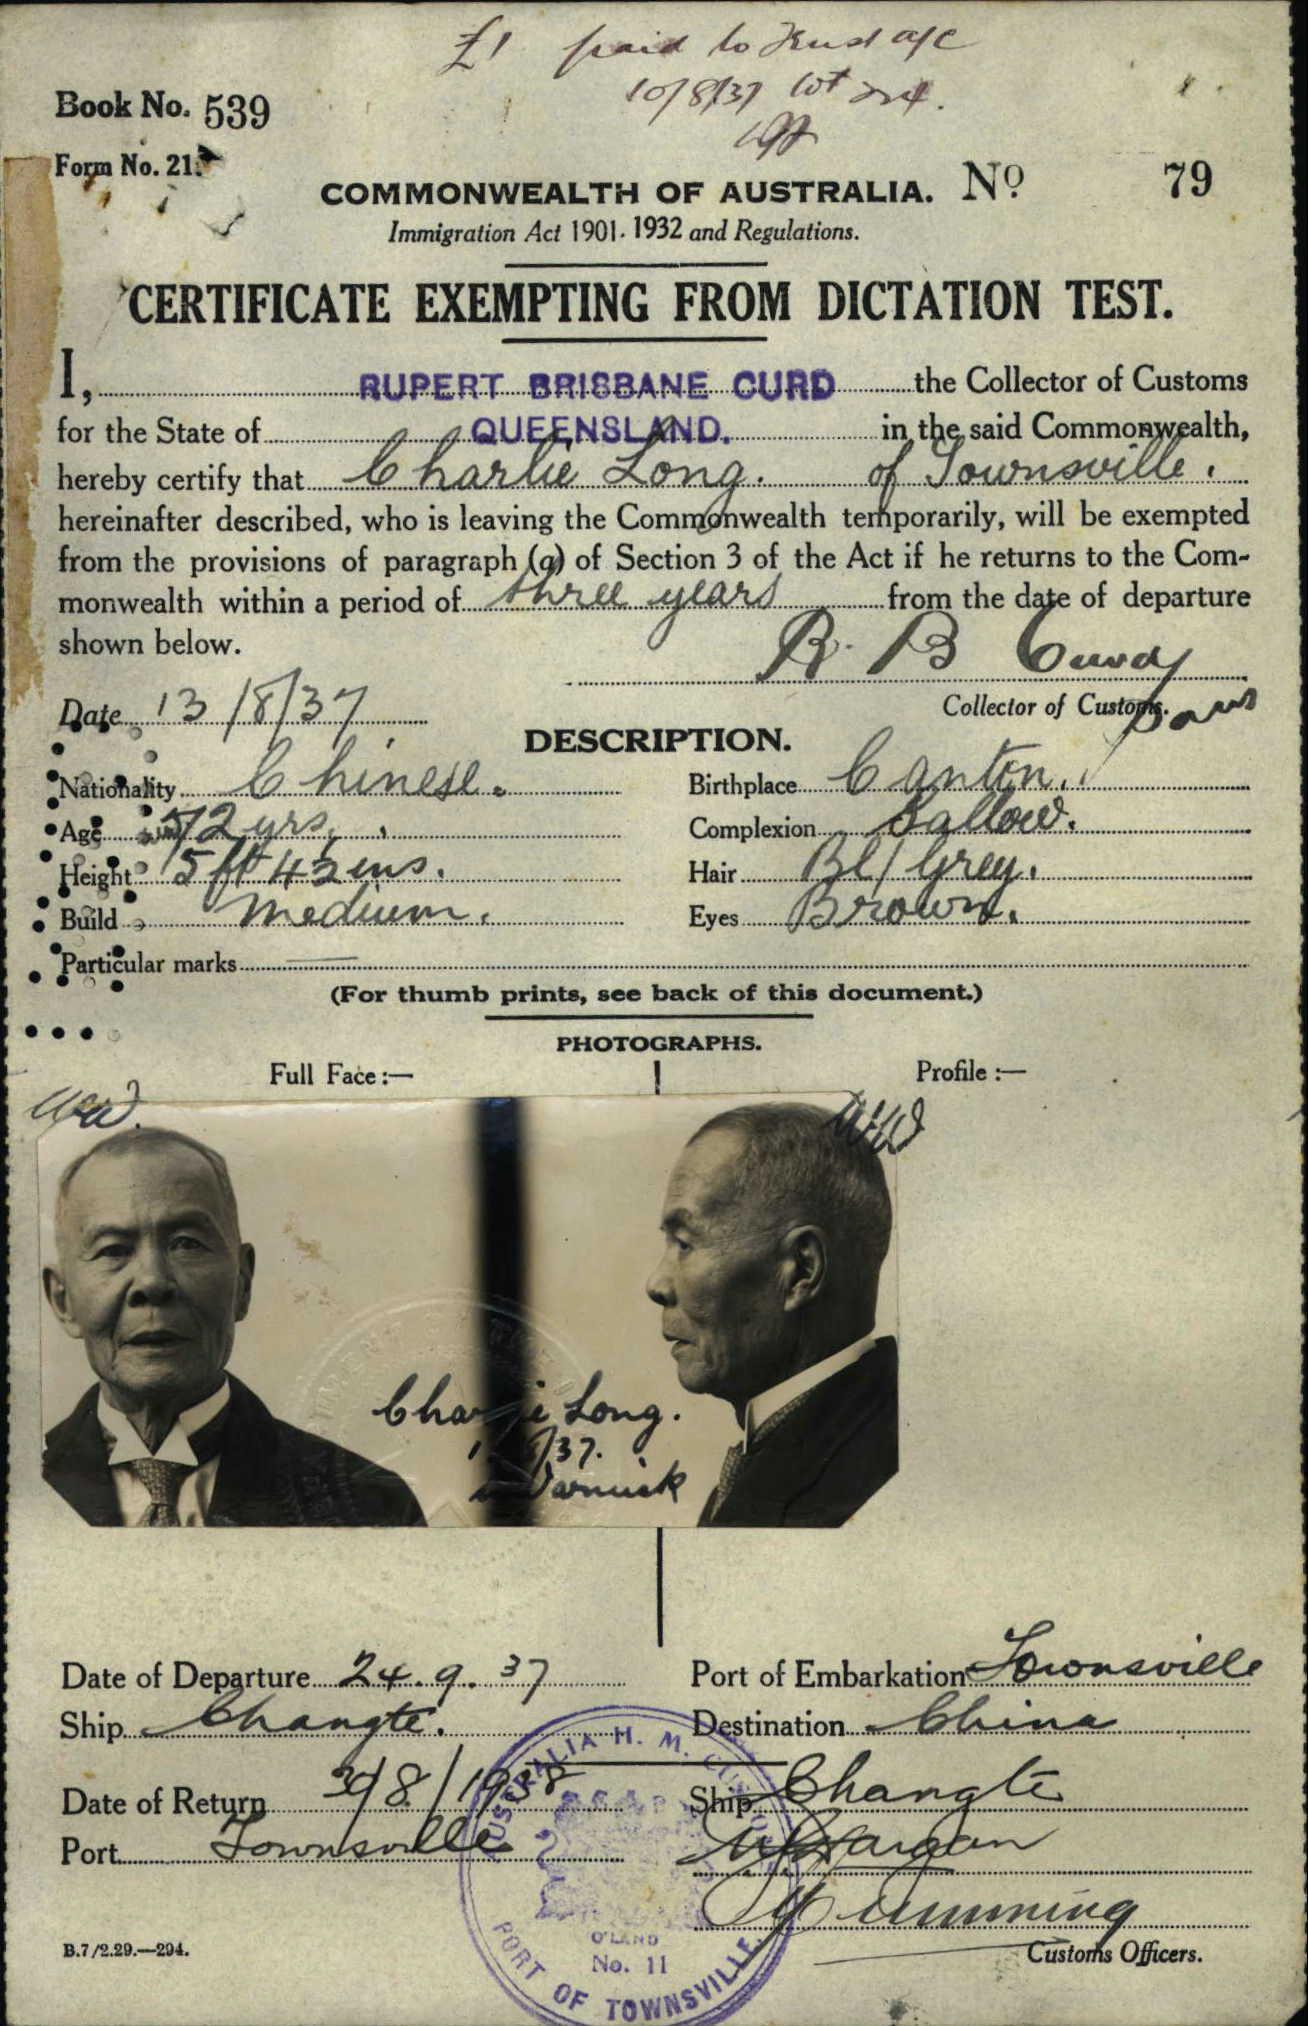 £1 paid to Trust a/c
10/8/37
Book No. 539
Form No. 21.
COMMONWEALTH OF AUSTRALIA. No 79
Immigration Act 1901-1932 and Regulations.
CERTIFICATE EXEMPTING FROM DICTATION TEST.
I, RUPERT BRISBANE CURD the Collector of Customs
for the State of QUEENSLAND. in the said Commonwealth,
hereby certify that Charlie Long. of Townsville.
hereinafter described, who is leaving the Commonwealth temporarily, will be exempted
from the provisions of paragraph (a) of Section 3 of the Act if he returns to the Com-
monwealth within a period of three years from the date of departure
shown below.
R. B Curd
Date 13/8/37 Collector of Customs.
DESCRIPTION.
Nationality Chinese. Birthplace Canton.
Age 72 yrs. Complexion Sallow.
Height 5 ft 4½ ins. Hair Bl/Grey.
Build Medium. Eyes Brown.
Particular marks —
(For thumb prints, see back of this document.)
PHOTOGRAPHS.
Full Face:— Profile :—
Charlie Long.
/37.
Warnick
Date of Departure 24.9.37 Port of Embarkation Townsville
Ship Changte. Destination China
Date of Return 30/8/1938 Ship Changte
Port Townsville
Cumming
Customs Officers.
B.7/2.29.—294.
AUSTRALIA H. M. CUSTOMS
Q'LAND
No. 11
PORT OF TOWNSVILLE